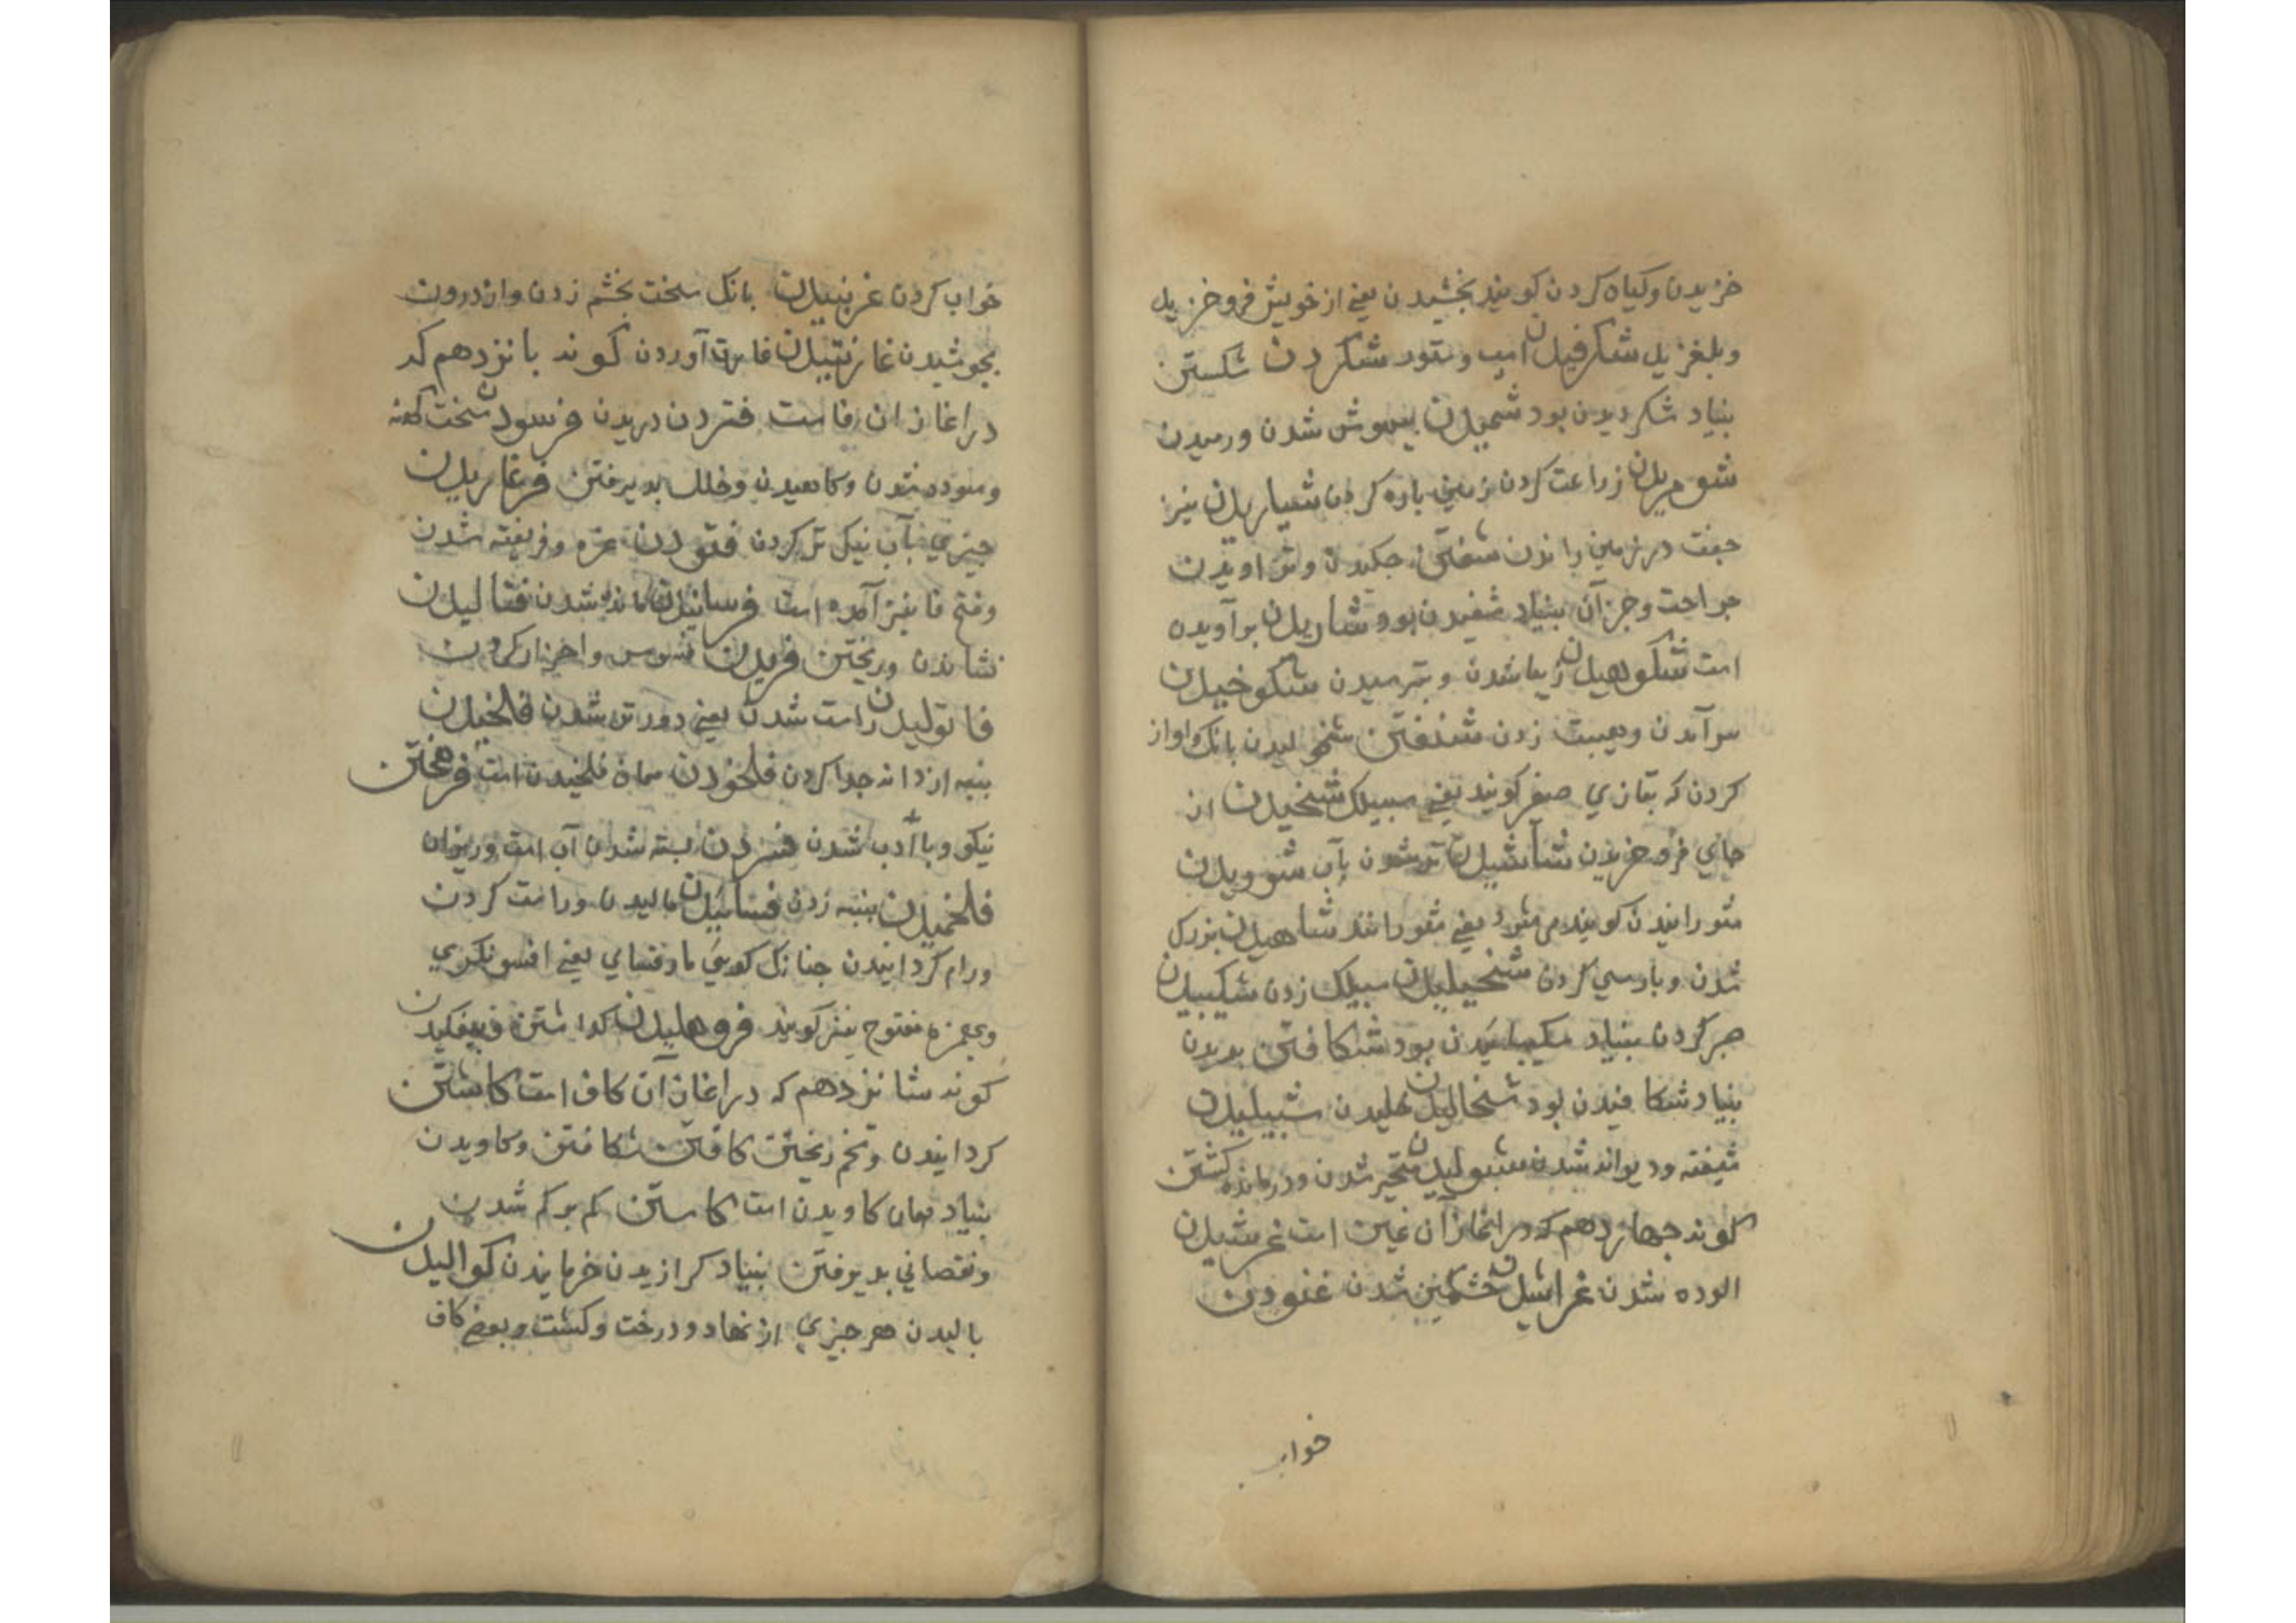 خزیدن وکیاه کردن کویند بخشیدن یعنی از خویش فرو خزیدن
وبلغزیدن شکرفیدن اسپ وستور شکردن شکستن
بنیاد شکردیدن بود شمیدن بیهوش شدن ورمیدن
زراعت کردن زمین باره کردن شیاریدن نیز
جفت در زمین راندن شفتن جکیدن وتراویدن
جراحت وجز آن بنیاد شفیدن بود شاریدن برآویده
است شکوهیدن زیبا شدن وبترسیدن شکوخیدن
سرآمدن وهیبت زدن شنفتن شخولیدن بانک واواز
کردن که بتازی صفیر کویند یعنی سبیلک شخیدن از
جای فرو خزیدن شاشیدن تر شدن بآب شوویدن
شورانیدن کویند می شورد یعنی شوراند شاهیدن بزرک
شدن وبارسی کردن شخیلیدن سبیلک زدن شکیبیدن
صبر کردن بنیاد شکیبانیدن بود شکافتن بریدن
بنیاد شکافیدن بود شخالیدن خلیدن شیبلیدن
شیفته ودیوانه شدن شبولیدن متحیر شدن ودرمانده کشتن
کوند جهاردهم که در اغاز آن غین است غرشیدن
الوده شدن غراشیدن خشمکین شدن غنودن
خواب
خواب کردن غرنبیدن بانک سخت بخشم زدن واز درون
بجوشیدن فا آوردن کوند بانزدهم که
در اغاز ان فا ست فتردن دریدن فرسودن سخت کهنه
وسوده شدن وکاهیدن وخلل بدیرفتن فرغاریدن
جیزی بآب نیک تر کردن فتودن غره وفریفته شدن
وفتح فا نیز آمده است شدن فتالیدن
نشاندن وریختن فریدن
فاتولیدن راست شدن یعنی دورتر شدن فلخیدن
بنبه از دانه جدا کردن فلخودن همان فلخیدن است فرهختن
نیکو وبا ادب شدن فسردن بسته شدن آب است
فلخمیدن بنبه زدن فسائیدن مالیدن وراست کردن
ورام کردانیدن جنانک کویی مارفسای یعنی افسونکری
وبهمزه مفتوح نیز کویند فروهلیدن کداشتن
کوند شانزدهم که در اغاز آن کاف است کاشتن
کردانیدن وتخم ریختن کافتن شکافتن وکاویدن
بنیاد همان کاویدن است کاستن کم بر کم شدن
ونقصانی بدیرفتن بنیاد کرازیدن خرمانیدن کوالیدن
بالیدن هر جیزی از نهاد ودرخت وکشت وبعضی کاف